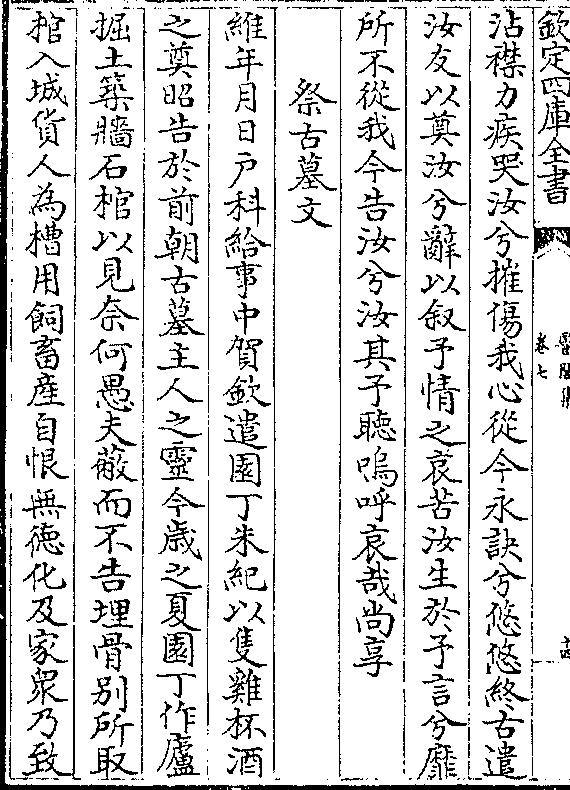 欽定四庫全書
醫閭集
卷七
沾襟力疾哭汝兮摧傷我心從今永訣兮悠悠終古遣
汝友以奠汝兮辭以叙予情之哀苦汝生於予言兮靡
所不從我今告汝兮汝其予聽嗚呼哀哉尚享
祭古墓文
維年月日戸科給事中賀欽遣園丁朱紀以隻雞杯酒
之奠昭告於前朝古墓主人之靈今歳之夏園丁作廬
掘土築牆石棺以見奈何愚夫蔽而不告埋骨别所取
棺入城貨人為槽用飼畜産自恨無徳化及家衆乃致